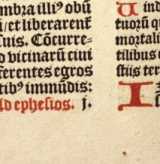 mbra illiꝰ obū
/et liberarent̄
suis. Cōcurre=
d vicinarū ciui
ferentes egros
tibꝰ immūdis:
ld ephesios. j.
ind
tuorū q
mortali
tilibus
stiis ter
I